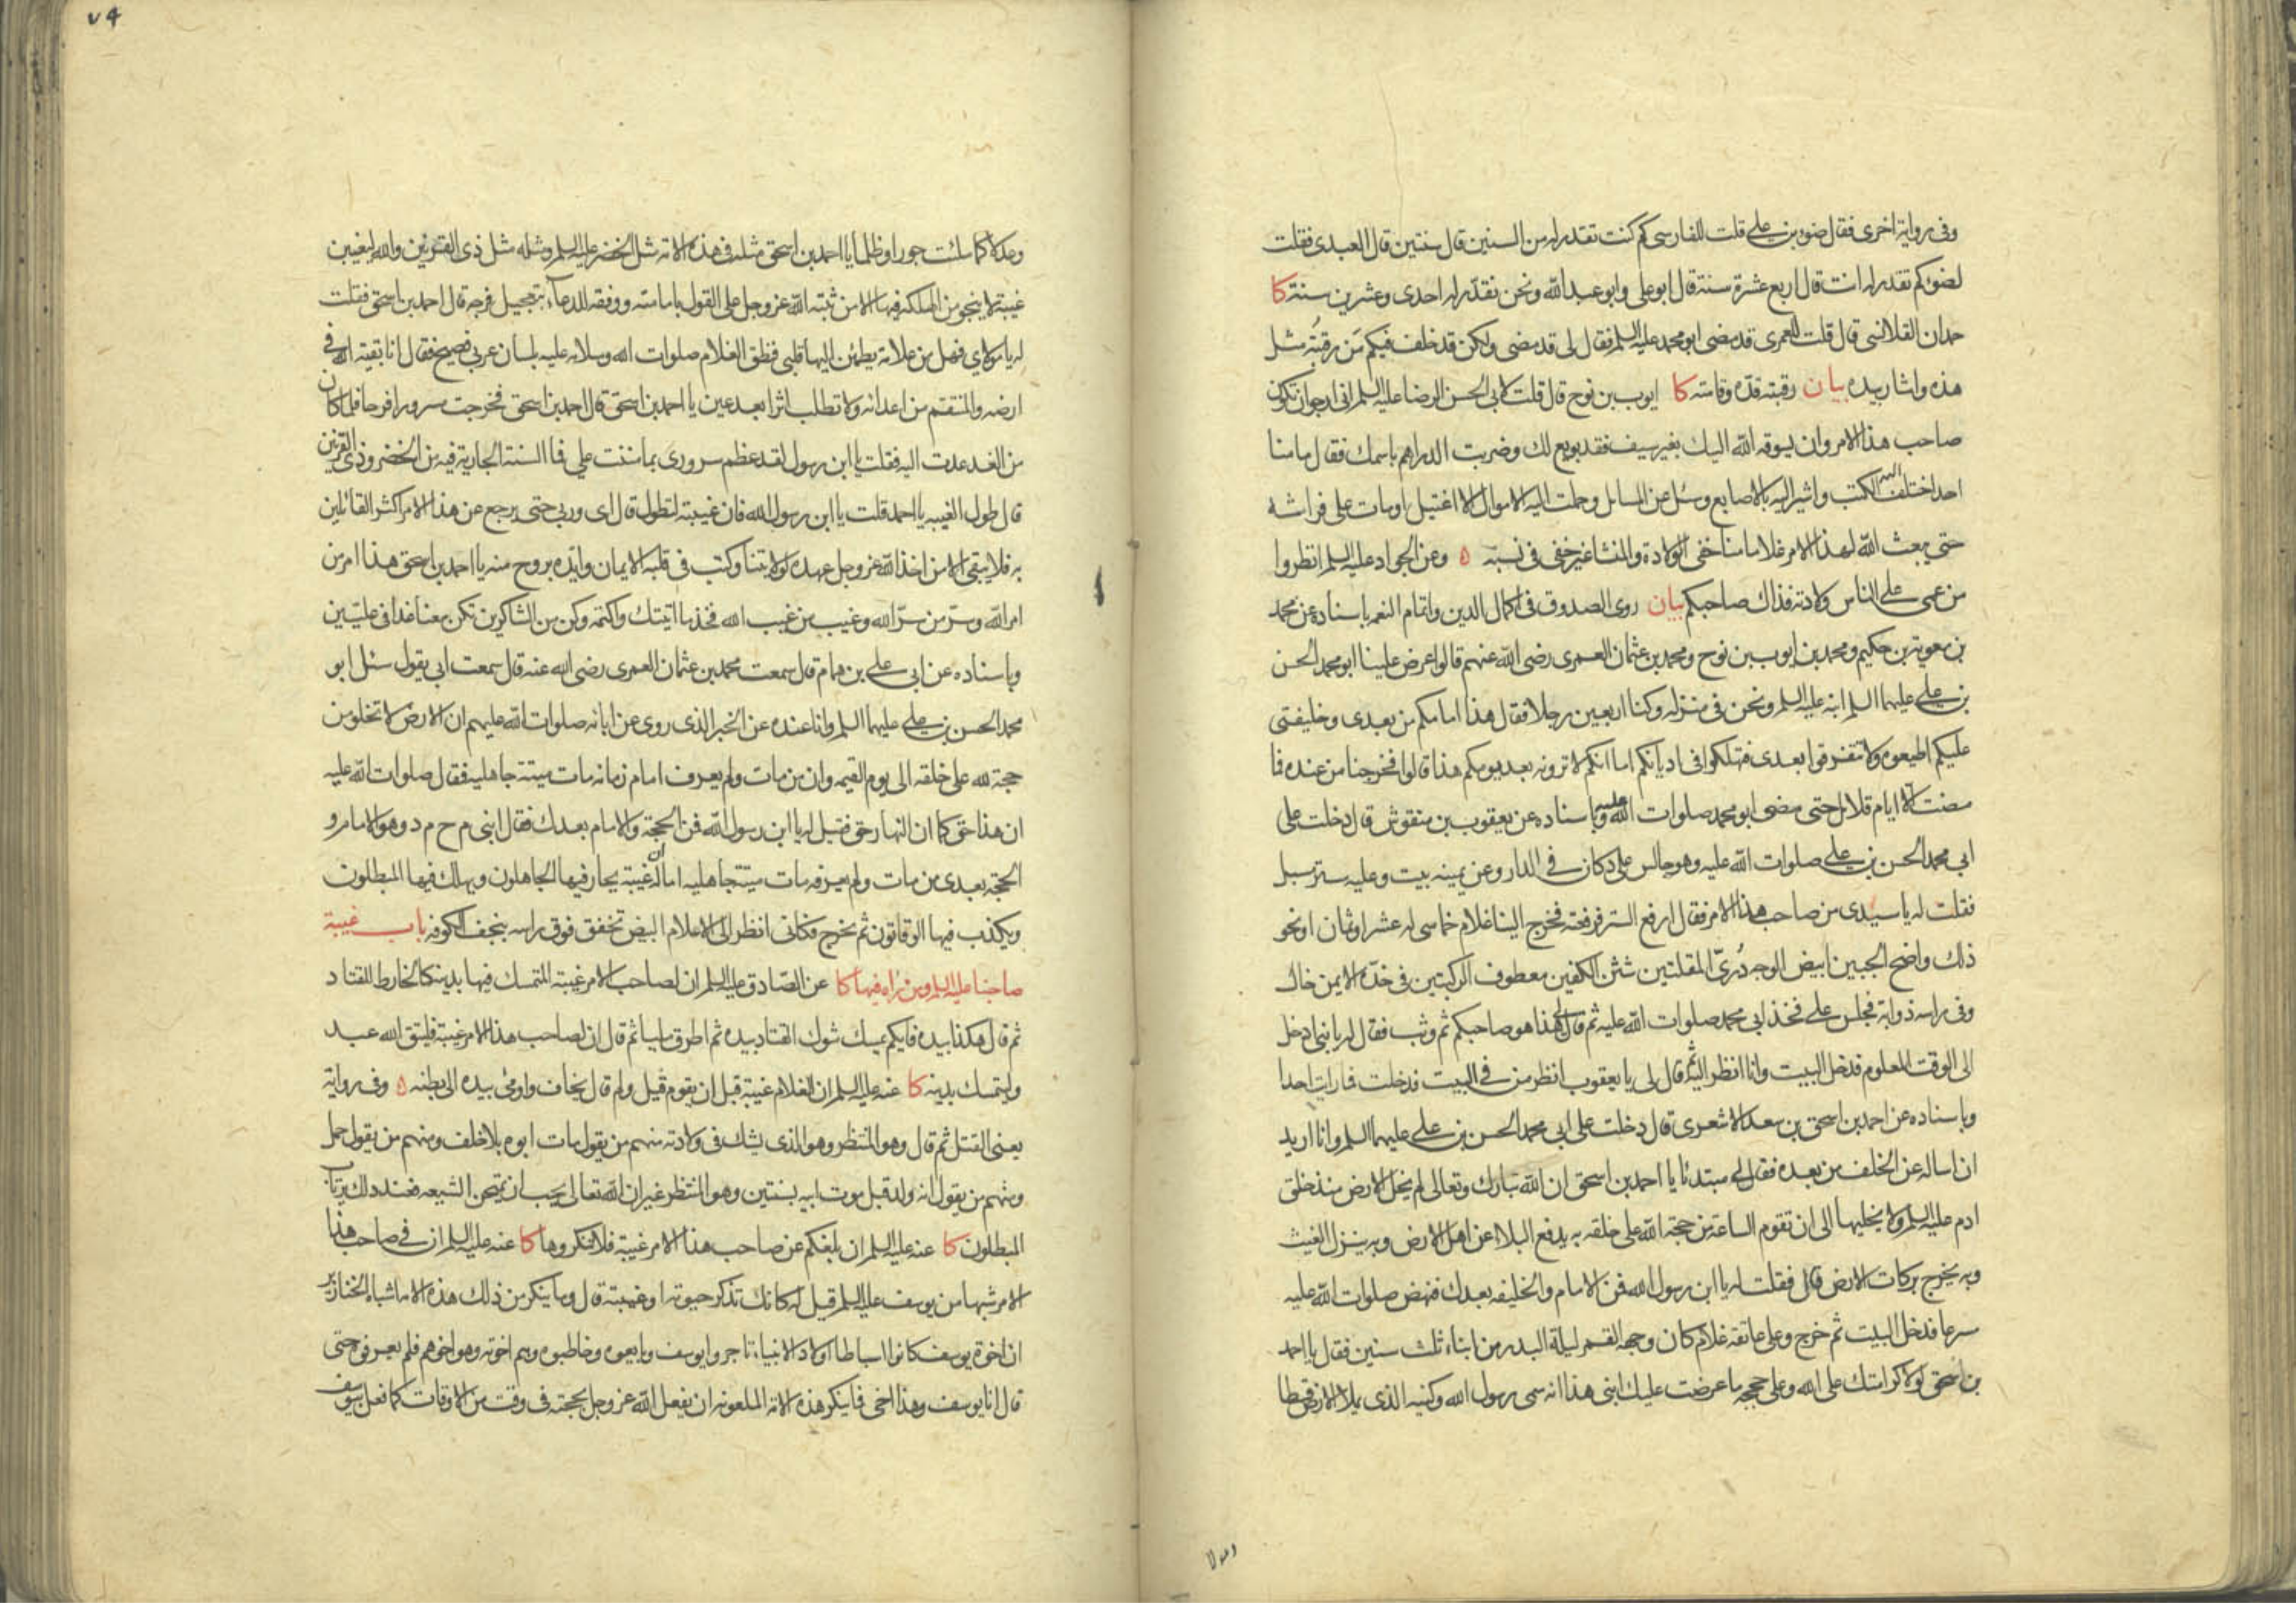 وفى رواية اخرى فقال ضوء بن على قلت للفارسى كم كنت تقدر له من السنين قال سنتين قال العبدى فقلت
لضوء كم تقدر له انت قال اربع عشرة سنة قال ابو على وابو عبد الله ونحن نقدّر له احدى وعشرين سنة كا
حمدان القلانسى قال قلت للعمرى قد مضى ابو محمد عليه السلم فقال لى قد مضى ولكن قد خلف فيكم من رقبته مثل
هذه واشار بيده بيان رقبته قدّه وقامته كا ايوب بن نوح قال قلت لابى الحسن الرضا عليه السلم انى ارجو ان تكون
صاحب هذا الامر وان يسوقه الله اليك بغير سيف فقد بويع لك وضربت الدراهم باسمك فقال ما منا
احد اختلف اليه الكتب واشير اليه بالاصابع وسئل عن المسائل وحملت اليه الاموال الا اغتيل او مات على فراشه
حتى يبعث الله لهذا الامر غلاما منا خفى الولادة والمنشا غير خفى فى نسبه ه وعن الجواد عليه السلم انظروا
من عمى على الناس ولادته فذاك صاحبكم بيان روى الصدوق فى اكمال الدين واتمام النعمه باسناده عن محمد
بن معوية بن حكيم ومحمد بن ايوب بن نوح ومحمد بن عثمان العمرى رضى الله عنهم قالوا عرض علينا ابو محمد الحسن
بن على عليهما السلم ابنه عليه السلم ونحن فى منزله وكنا اربعين رجلا فقال هذا امامكم من بعدى وخليفتى
عليكم اطيعوه ولا تتفرقوا بعدى فتهلكوا فى اديانكم اما انكم لا ترونه بعد يومكم هذا قالوا فخرجنا من عنده فما
مضت الا ايام قلائل حتى مضى ابو محمد صلوات الله عليه وباسناده عن يعقوب بن منقوش قال دخلت على
ابى محمد الحسن بن على صلوات الله عليه وهو جالس على دكان فى الدار وعن يمينه بيت وعليه ستر مسبل
فقلت له يا سيدى من صاحب هذا الامر فقال ارفع الستر فرفعته فخرج الينا غلام خماسى له عشر او ثمان او نحو
ذلك واضح الجبين ابيض الوجه درّى المقلتين شثن الكفين معطوف الركبتين فى خدّه الايمن خال
وفى راسه ذوابة فجلس على فخذ ابى محمد صلوات الله عليه ثم قال لى هذا هو صاحبكم ثم وثب فقال له يا بنى ادخل
الى الوقت المعلوم فدخل البيت وانا انظر اليه ثم قال لى يا يعقوب انظر من فى البيت فدخلت فما رايت احدا
وباسناده عن احمد بن اسحق بن سعد الاشعرى قال دخلت على ابى محمد الحسن بن على عليهما السلم وانا اريد
ان اساله عن الخلف من بعده فقال لى مبتدئا يا احمد بن اسحق ان الله تبارك وتعالى لم يخل الارض منذ خلق
ادم عليه السلم ولا يخليها الى ان تقوم الساعة من حجة الله على خلقه به يدفع البلاء عن اهل الارض وبه ينزل الغيث
وبه يخرج بركات الارض قال فقلت له يا ابن رسول الله فمن الامام والخليفه بعدك فنهض صلوات الله عليه
مسرعا فدخل البيت ثم خرج وعلى عاتقه غلام كان وجهه القمر ليلة البدر من ابناء ثلث سنين فقال يا احمد
بن اسحق لولا كرامتك على الله وعلى حججه ما عرضت عليك ابنى هذا انه سمى رسول الله وكنيه الذى يملا الارض قسطا
وعدلا
وعدلا كما ملئت جورا وظلما يا احمد بن اسحق مثله فى هذه الامة مثل الخضر عليه السلم ومثله مثل ذى القرنين والله ليغيبن
غيبة لا ينجو من الهلكه فيها الا من ثبته الله عز وجل على القول بامامته ووفقه للدعاء بتعجيل فرجه قال احمد بن اسحق فقلت
له يا مولاى فهل من علامة يطمئن اليها قلبى فنطق الغلام صلوات الله وسلامه عليه بلسان عربى فصيح فقال انا بقية الله فى
ارضه والمنتقم من اعدائه ولا تطلب اثرا بعد عين يا احمد بن اسحق قال احمد بن اسحق فخرجت مسرورا فرحا فلما كان
من الغد عدت اليه فقلت يا ابن رسول لقد عظم سرورى بما مننت على فما السنة الجارية فيه من الخضر وذى القرنين
قال طول الغيبه يا احمد قلت يا ابن رسول الله فان غيبته لتطول قال اى وربى حتى يرجع عن هذا الامر اكثر القائلين
به فلا يبقى الا من اخذ الله عز وجل عهده لولايتنا وكتب فى قلبه الايمان وايّده بروح منه يا احمد بن اسحق هذا امر من
امر الله وسرّ من سرّ الله وغيب من غيب الله فخذ ما اتيتك واكتمه وكن من الشاكرين تكن معنا غدا فى عليّين
وباسناده عن ابى على بن همام قال سمعت محمد بن عثمان العمرى رضى الله عنه قال سمعت ابى يقول سئل ابو
محمد الحسن بن على عليهما السلم وانا عنده عن الخبر الذى روى عن ابائه صلوات الله عليهم ان الارض لا تخلو من
حجة لله على خلقه الى يوم القيمه وان من مات ولم يعرف امام زمانه مات ميتة جاهليه فقال صلوات الله عليه
ان هذا حق كما ان النهار حق فقيل له يا ابن رسول الله فمن الحجة والامام بعدك فقال ابنى م ح م د وهو الامام و
الحجة بعدى من مات ولم يعرفه مات ميتة جاهليه اما ان له غيبة يحار فيها الجاهلون ويهلك فيها المبطلون
ويكذب فيها الوقاتون ثم يخرج فكانى انظر الى الاعلام البيض تخفق فوق راسه بنجف الكوفه باب غيبة
صاحبنا عليه السلم ومن راه فيها كا عن الصّادق عليه السلم ان لصاحب الامر غيبة المتمسك فيها بدينه كالخارط للقتاد
ثم قال هكذا بيده فايكم يمسك شوك القتاد بيده ثم اطرق مليا ثم قال ان لصاحب هذا الامر غيبة فليتق الله عبد
وليتمسك بدينه كا عنه عليه السلم ان للغلام غيبة قبل ان يقوم قيل ولم قال يخاف واومى بيده الى بطنه ه وفى رواية
يعنى القتل ثم قال وهو المنتظر وهو الذى يشك فى ولادته منهم من يقول مات ابوه بلا خلف ومنهم من يقول حمل
ومنهم من يقول انه ولد قبل موت ابيه بسنتين وهو المنتظر غير ان الله تعالى يحب ان يمتحن الشيعه فعند ذلك يرتاب
المبطلون كا عنه عليه السلم ان بلغكم عن صاحب هذا الامر غيبة فلا تنكروها كا عنه عليه السلم ان فى صاحب هذا
الامر شبها من يوسف عليه السلم قيل له كانك تذكر حيوته او غيبته قال وما ينكر من ذلك هذه الامة اشباه الخنازير
ان اخوة يوسف كانوا اسباطا اولاد الانبياء تاجروا يوسف وبايعوه وخاطبوه وهم اخوته وهو اخوهم فلم يعرفوه حتى
قال انا يوسف وهذا اخى فما ينكر هذه الامة الملعونه ان يفعل الله عز وجل بحجته فى وقت من الاوقات كما فعل بيوسف